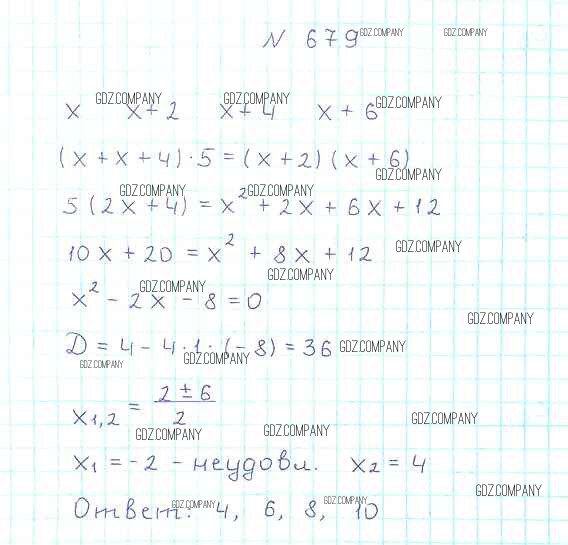 N 679 GDZ.COMPANY GDZ.COMPANY
x x+2 x+4 x+6 GDZ.COMPANY GDZ.COMPANY GDZ.COMPANY
(x + x + 4) · 5 = (x + 2) (x + 6) GDZ.COMPANY
GDZ.COMPANY GDZ.COMPANY
5 (2x + 4) = x² + 2x + 6x + 12
10x + 20 = x² + 8x + 12 GDZ.COMPANY
GDZ.COMPANY
x² - 2x - 8 = 0 GDZ.COMPANY
GDZ.COMPANY
D = 4 - 4 · 1 · (-8) = 36 GDZ.COMPANY
GDZ.COMPANY GDZ.COMPANY
x₁,₂ = (2 ± 6) / 2 GDZ.COMPANY
GDZ.COMPANY GDZ.COMPANY
x₁ = -2 - неудовл. x₂ = 4
GDZ.COMPANY
Ответ: 4, 6, 8, 10 GDZ.COMPANY GDZ.COMPANY